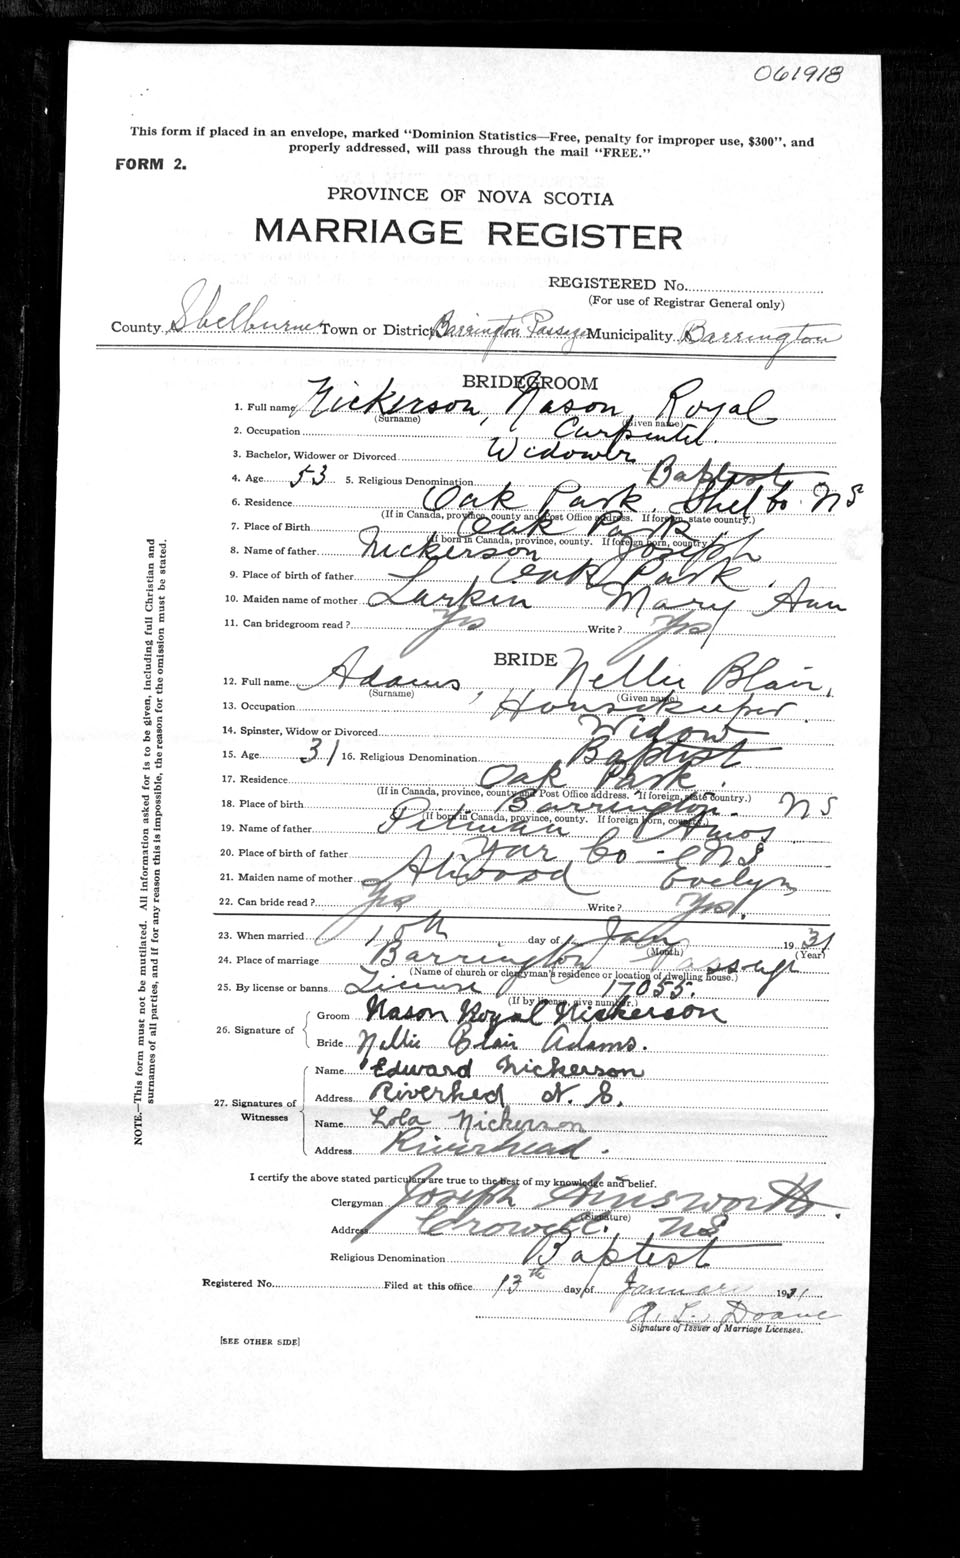 061918
This form if placed in an envelope, marked "Dominion Statistics—Free, penalty for improper use, $300", and
properly addressed, will pass through the mail "FREE."
FORM 2.
PROVINCE OF NOVA SCOTIA
MARRIAGE REGISTER
REGISTERED No.
(For use of Registrar General only)
County Shelburne Town or District Barrington Passage Municipality Barrington
BRIDEGROOM
1. Full name Nickerson, Nason, Royal
(Surname) (Given name)
2. Occupation Carpenter.
3. Bachelor, Widower or Divorced Widower
4. Age 53 5. Religious Denomination Baptist
6. Residence Oak Park, Shel Co. N S
(If in Canada, province, county and Post Office address. If foreign, state country.)
7. Place of Birth Oak Park
(If born in Canada, province, county. If foreign born, country.)
8. Name of father Nickerson Joseph
9. Place of birth of father Oak Park.
10. Maiden name of mother Larkin Mary Ann
11. Can bridegroom read? Yes Write? Yes
BRIDE
12. Full name Adams, Nellie Blair,
(Surname) (Given name)
13. Occupation Housekeeper.
14. Spinster, Widow or Divorced Widow
15. Age 31 16. Religious Denomination Baptist
17. Residence Oak Park.
(If in Canada, province, county and Post Office address. If foreign, state country.)
18. Place of birth Barrington. N S
(If born in Canada, province, county. If foreign born, country.)
19. Name of father Pitman Amos
20. Place of birth of father Yar Co - NS
21. Maiden name of mother Atwood Evelyn
22. Can bride read? Yes Write? Yes.
23. When married 10th day of Jan 1931
(Month) (Year)
24. Place of marriage Barrington Passage
(Name of church or clergyman's residence or location of dwelling house.)
25. By license or banns License 17055.
(If by license, give number.)
26. Signature of Groom Nason Royal Nickerson
Bride Nellie Blair Adams.
27. Signatures of Witnesses
Name Edward Nickerson
Address Riverhed N. S.
Name Lola Nickerson
Address Riverhead.
I certify the above stated particulars are true to the best of my knowledge and belief.
Clergyman Joseph Ainsworth.
(Signature)
Address Crowell. NS
Religious Denomination Baptist
Registered No. Filed at this office 13th day of January 1931
A. L. Doane
Signature of Issuer of Marriage Licenses.
[SEE OTHER SIDE]
NOTE.—This form must not be mutilated. All information asked for is to be given, including full Christian and
surnames of all parties, and if for any reason this is impossible, the reason for the omission must be stated.